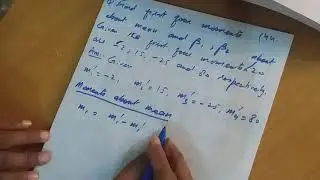 Q) Find first four moments
about mean and β₁, β₂
Given the first four moments about
are 5, 15, -25 and 80 respectively
Ans: Given
m₁' = -2, m₂' = 15, m₃' = -25, m₄' = 80
Moments about mean
m₁ = m₁' - m₁'